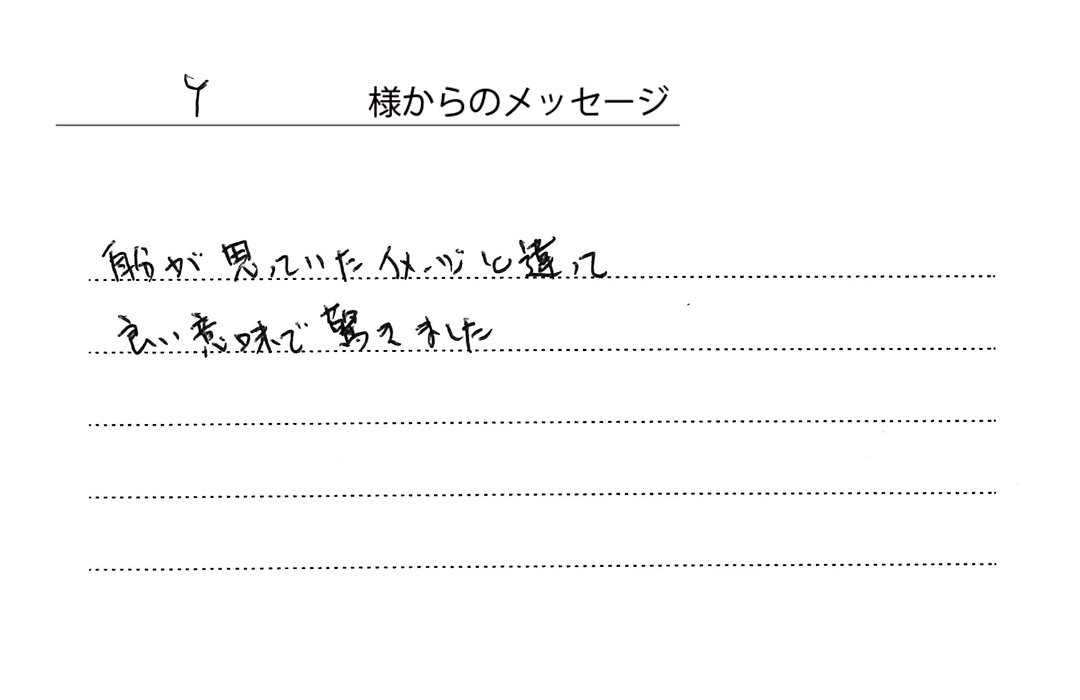 Y 様からのメッセージ
自分が思っていたイメージと違って
良い意味で驚きました